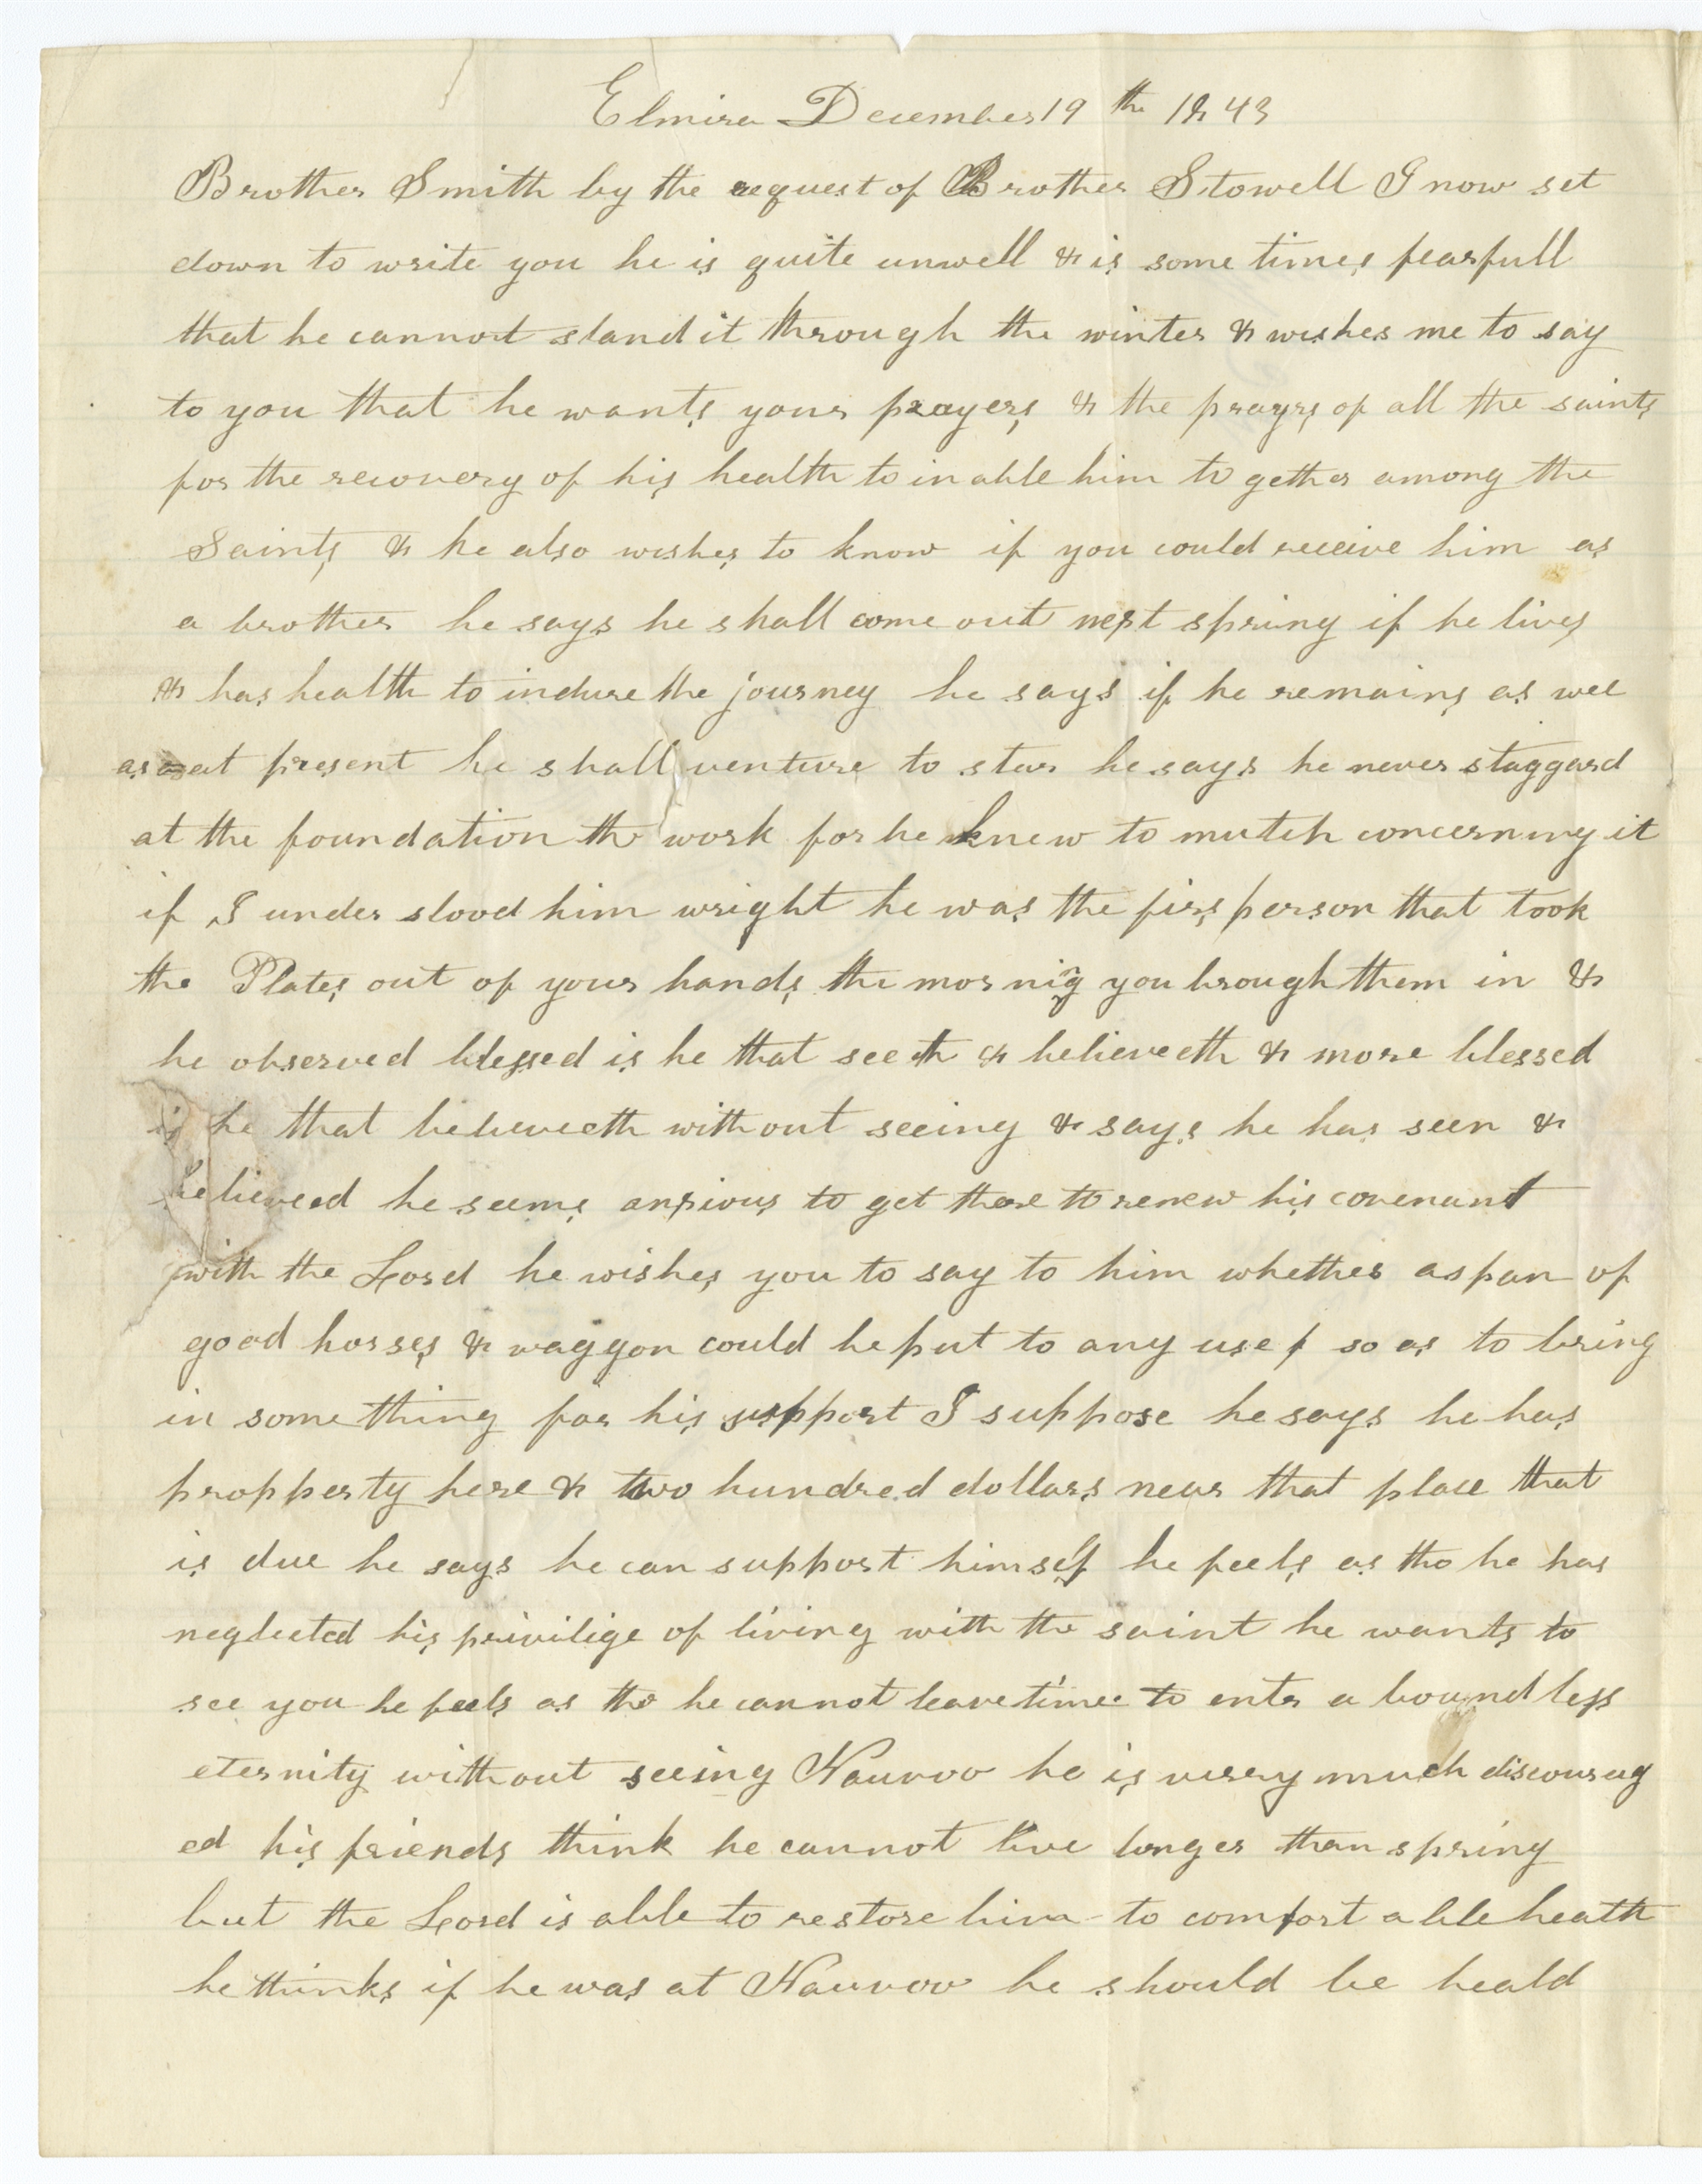 Elmira December 19 th 1843
Brother Smith by the request of Brother Stowell I now set
down to write you he is quite unwell & is some times fearfull
that he cannot stand it through the winter & wishes me to say
to you that he wants your prayers & the prayrs of all the saints
for the recovery of his health to inable him to gether among the
Saints & he also wishes to know if you could receive him as
a brother he says he shall come out next spring if he lives
& has health to indure the journey he says if he remains as well
as at present he shall venture to star he says he never staggard
at the foundation the work for he knew to mutch concerning it
if I under stood him wright he was the firs person that took
the Plates out of your hands the mornig you brough them in &
he observed blessed is he that seeth & believeeth & more blessed
is he that believeeth without seeing & says he has seen &
believeed he seems anxious to get there to renew his covenant
with the Lord he wishes you to say to him whether a span of
good horses & waggon could be put to any use so as to bring
in some thing for his support I suppose he says he has
propperty here & two hundred dollars near that place that
is due he says he can support himself he feels as tho he has
neglected his privilige of living with the saint he wants to
see you he feels as tho he cannot leave time to enter a boundless
eternity without seeing Nauvoo he is very much discourag
ed his friends think he cannot live longer than spring
but the Lord is able to restore him to comfort able heath
he thinks if he was at Nauvoo he should be heald